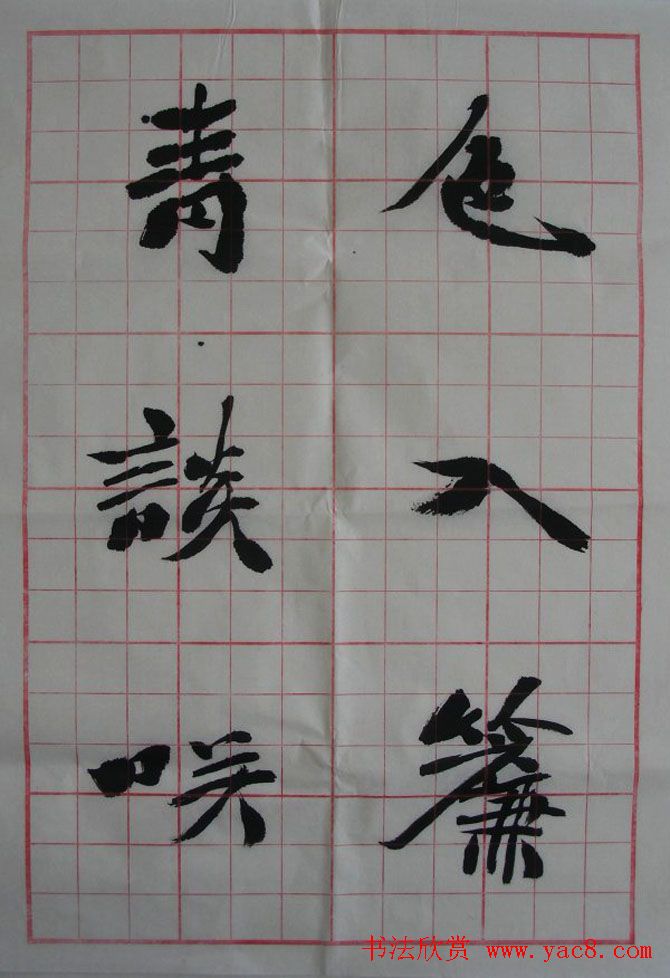 色入簾
青談咲
书法欣赏 www.yac8.com